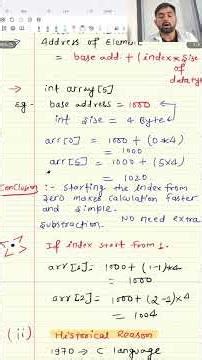 Address of Element
= base add. + (index * size
of
datatyp
→ int array [5]
eg- base address = 1000
int size = 4 Byte
arr[0] = 1000 + (0*4)
= 1000
arr[5] = 1000 + (5x4)
= 1020.
Conclusion :- starting the index from
zero makes calculation faster
and simple. No need extra
substraction.
If index start from 1.
arr[1] = 1000 + (1-1)*4
= 1000
arr[2] = 1000 + (2-1)*4
= 1004
(ii) Historical Reason
1970 → C language